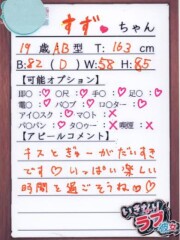 すず♥ちゃん
19歳AB型 T:163cm
B:82(D) W:58 H:85
【可能オプション】
即○:♡ ○R:♡ 手○:♡ 足○:♡
電○:♡ バ○ブ:♡ ロ○ター:♡
アイ○スク:♡ マ○ト:×
パ○パン:♡ タ○ゥー:× 喫煙:×
【アピールコメント】
キスとぎゅーがだいすき
です♡いっぱい楽しい
時間を過ごそうね♡♡
いきなり!
ラブ彼女